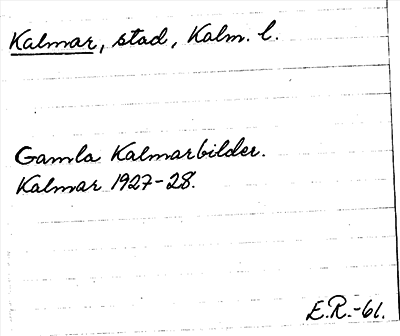 Kalmar, stad, Kalm. l.
Gamla Kalmarbilder.
Kalmar 1927-28.
E.R.-61.